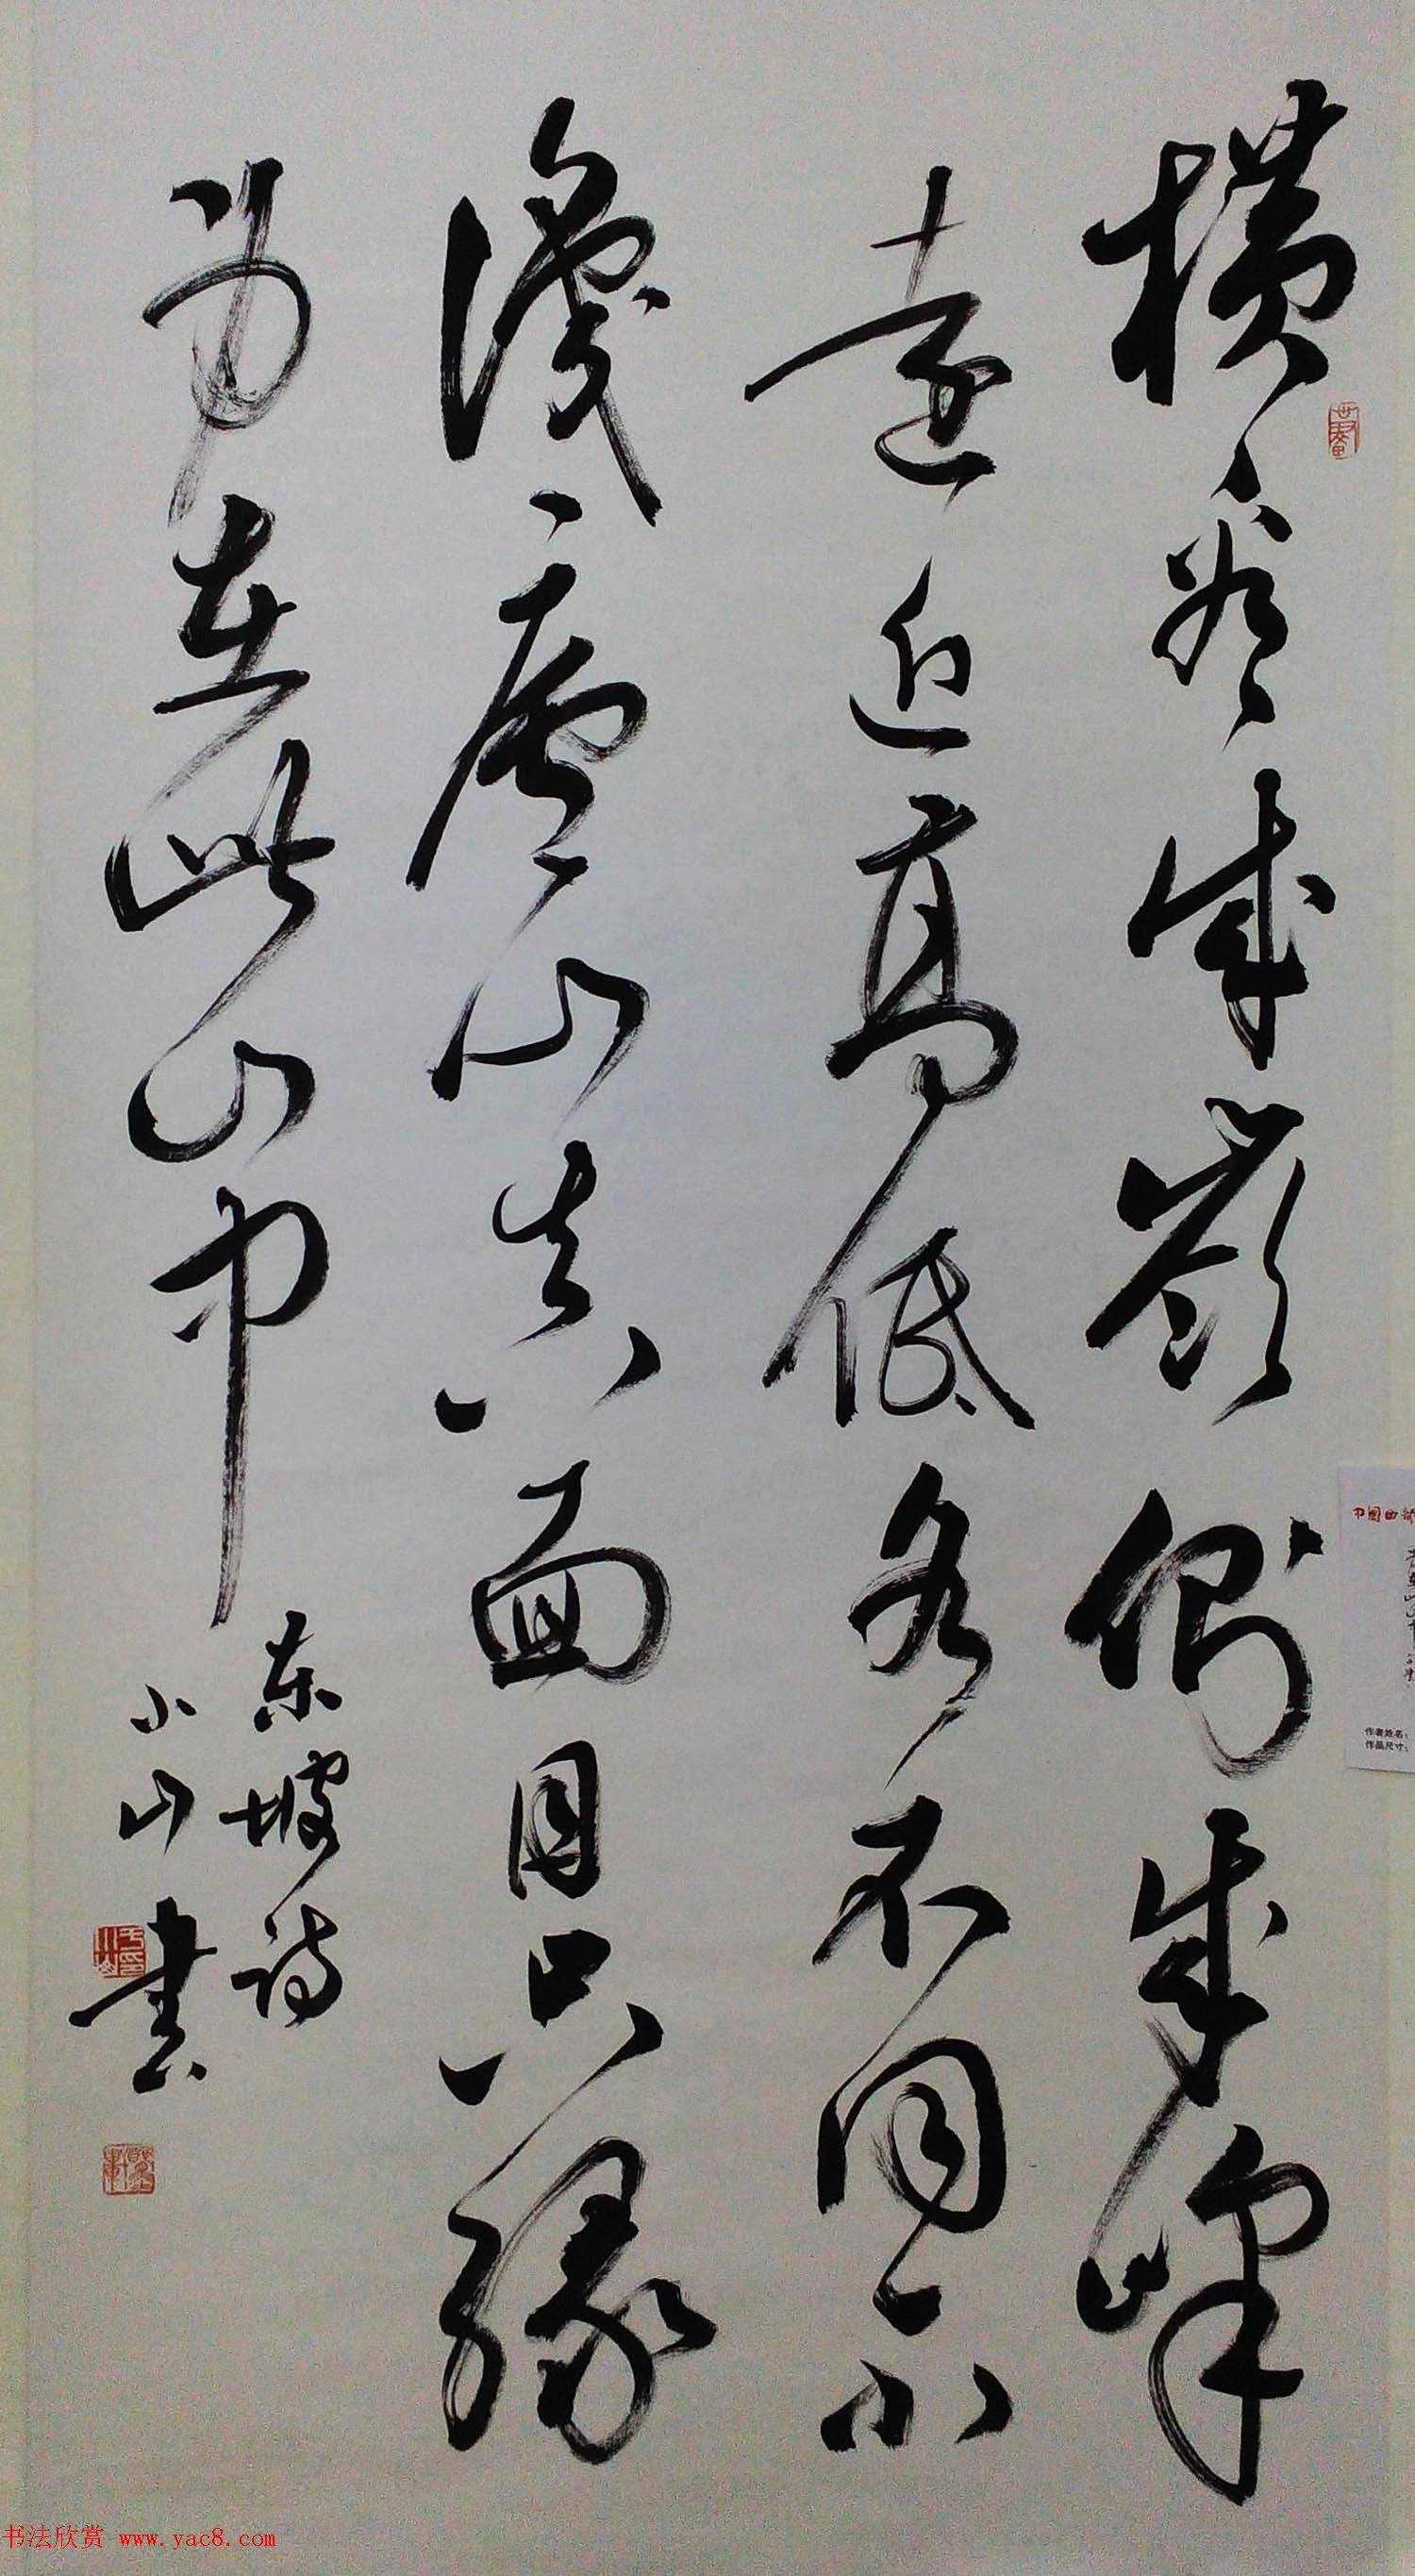 横看成嶺側成峰
遠近高低各不同不
識廬山真面目只緣
身在此山中
东坡诗
小山書
中国西部
作者姓名:
作品尺寸:
书法欣赏 www.yac8.com